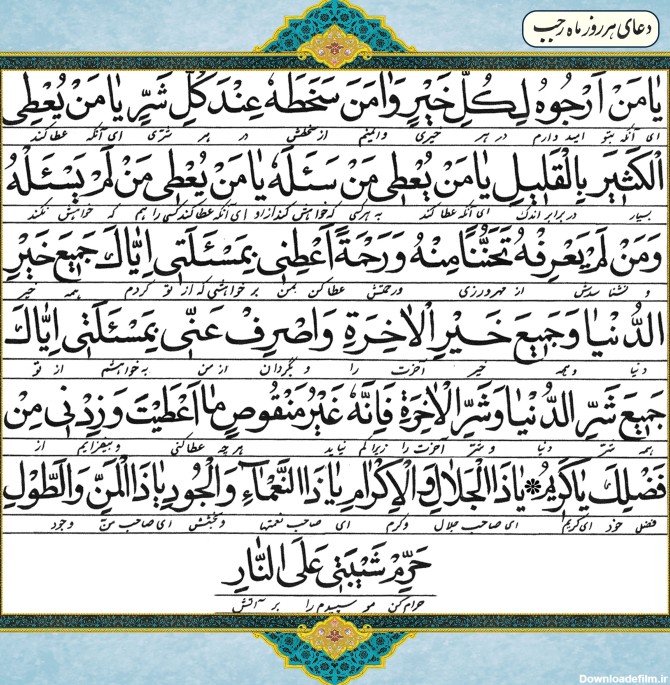 دعای هر روز ماه رجب
یٰا مَنْ اَرْجُوهُ لِکُلِّ خَیْرٍ وَاٰمَنَ سَخَطَهُ عِنْدَ کُلِّ شَرٍّ یٰا مَنْ یُعْطِی
ای آنکه بتو امید دارم در هر خیری و ایمنم از سخطش در هر شری ای آنکه عطا کند
الْکَثیٖرَ بِالْقَلیٖلِ یٰا مَنْ یُعْطیٖ مَنْ سَئَلَهُ یٰا مَنْ یُعْطیٖ مَنْ لَمْ یَسْئَلْهُ
بسیار در برابر اندک ای آنکه عطا کند به هر کسی که خواهش کند از او ای آنکه عطا کند کسی را هم که خواهش نکند
وَمَنْ لَمْ یَعْرِفْهُ تَحَنُّنًا مِنْهُ وَرَحْمَةً اَعْطِنیٖ بِمَسْئَلَتیٖ اِیّٰاکَ جَمیٖعَ خَیْرِ
و نشناسدش از مهرورزی و رحمتش عطا کن بمن بر خواهشی که از تو کردم همه خیر
الدُّنْیٰا وَجَمیٖعَ خَیْرِ الْاٰخِرَةِ وَاصْرِفْ عَنّیٖ بِمَسْئَلَتیٖ اِیّٰاکَ
دنیا و همه خیر آخرت را و بگردان از من به خواهشم از تو
جَمیٖعَ شَرِّ الدُّنْیٰا وَشَرِّ الْاٰخِرَةِ فَاِنَّهُ غَیْرُ مَنْقُوصٍ مٰا اَعْطَیْتَ وَزِدْنیٖ مِنْ
همه شر دنیا و شر آخرت را زیرا کم نیاید هر چه عطا کنی و بیفزایم از
فَضْلِکَ یٰا کَریٖمُ * یٰا ذَا الْجَلاٰلِ وَالْاِکْرٰامِ یٰا ذَا النَّعْمٰاءِ وَالْجُودِ یٰا ذَا الْمَنِّ وَالطَّوْلِ
فضل خود ای کریم ای صاحب جلال و کرم ای صاحب نعمتها و بخشش ای صاحب من و جود
حَرِّمْ شَیْبَتیٖ عَلَی النّٰارِ
حرام کن مو سپیدم را بر آتش
Downloadefilm.ir